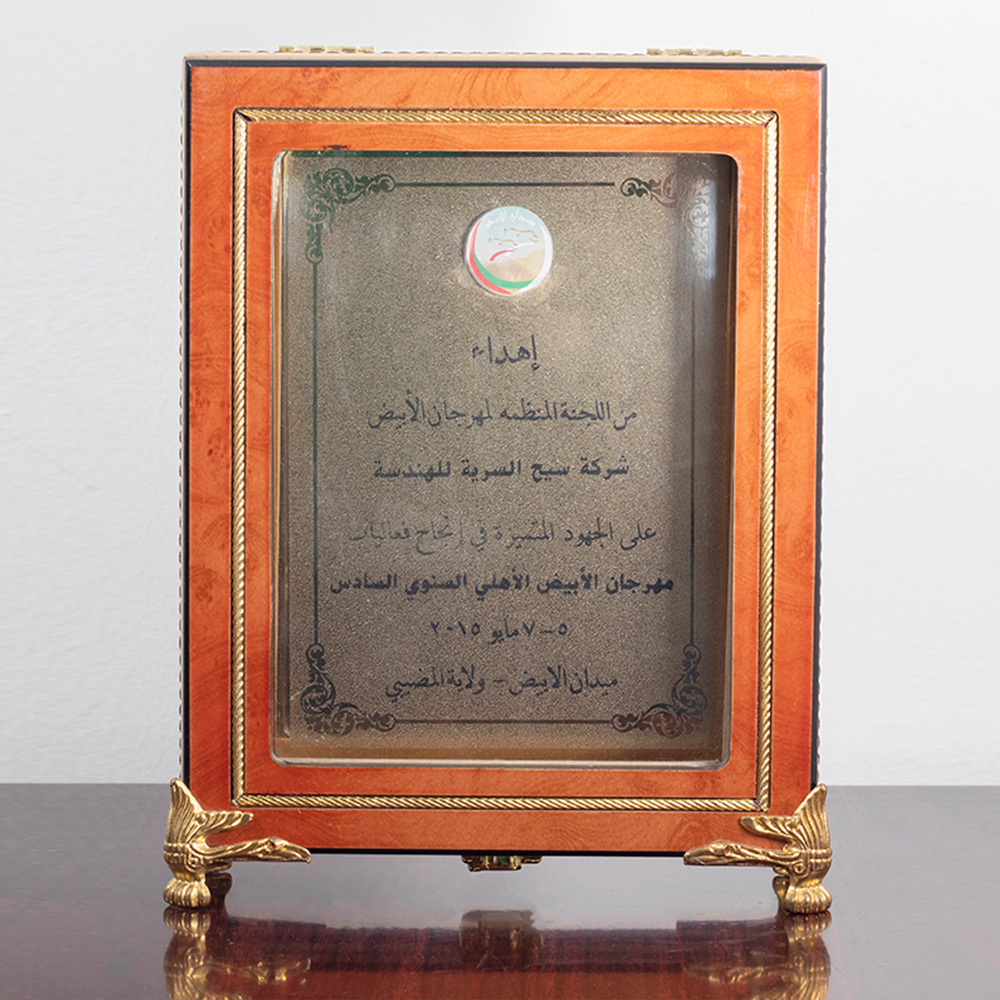 ميدان الأبيض
إهداء
من اللجنة المنظمه لمهرجان الأبيض
شركة سيح السرية للهندسة
على الجهود المتميزة في إنجاح فعاليات
مهرجان الأبيض الأهلي السنوي السادس
٥ - ٧ مايو ٢٠١٥
ميدان الابيض - ولاية المضيبي